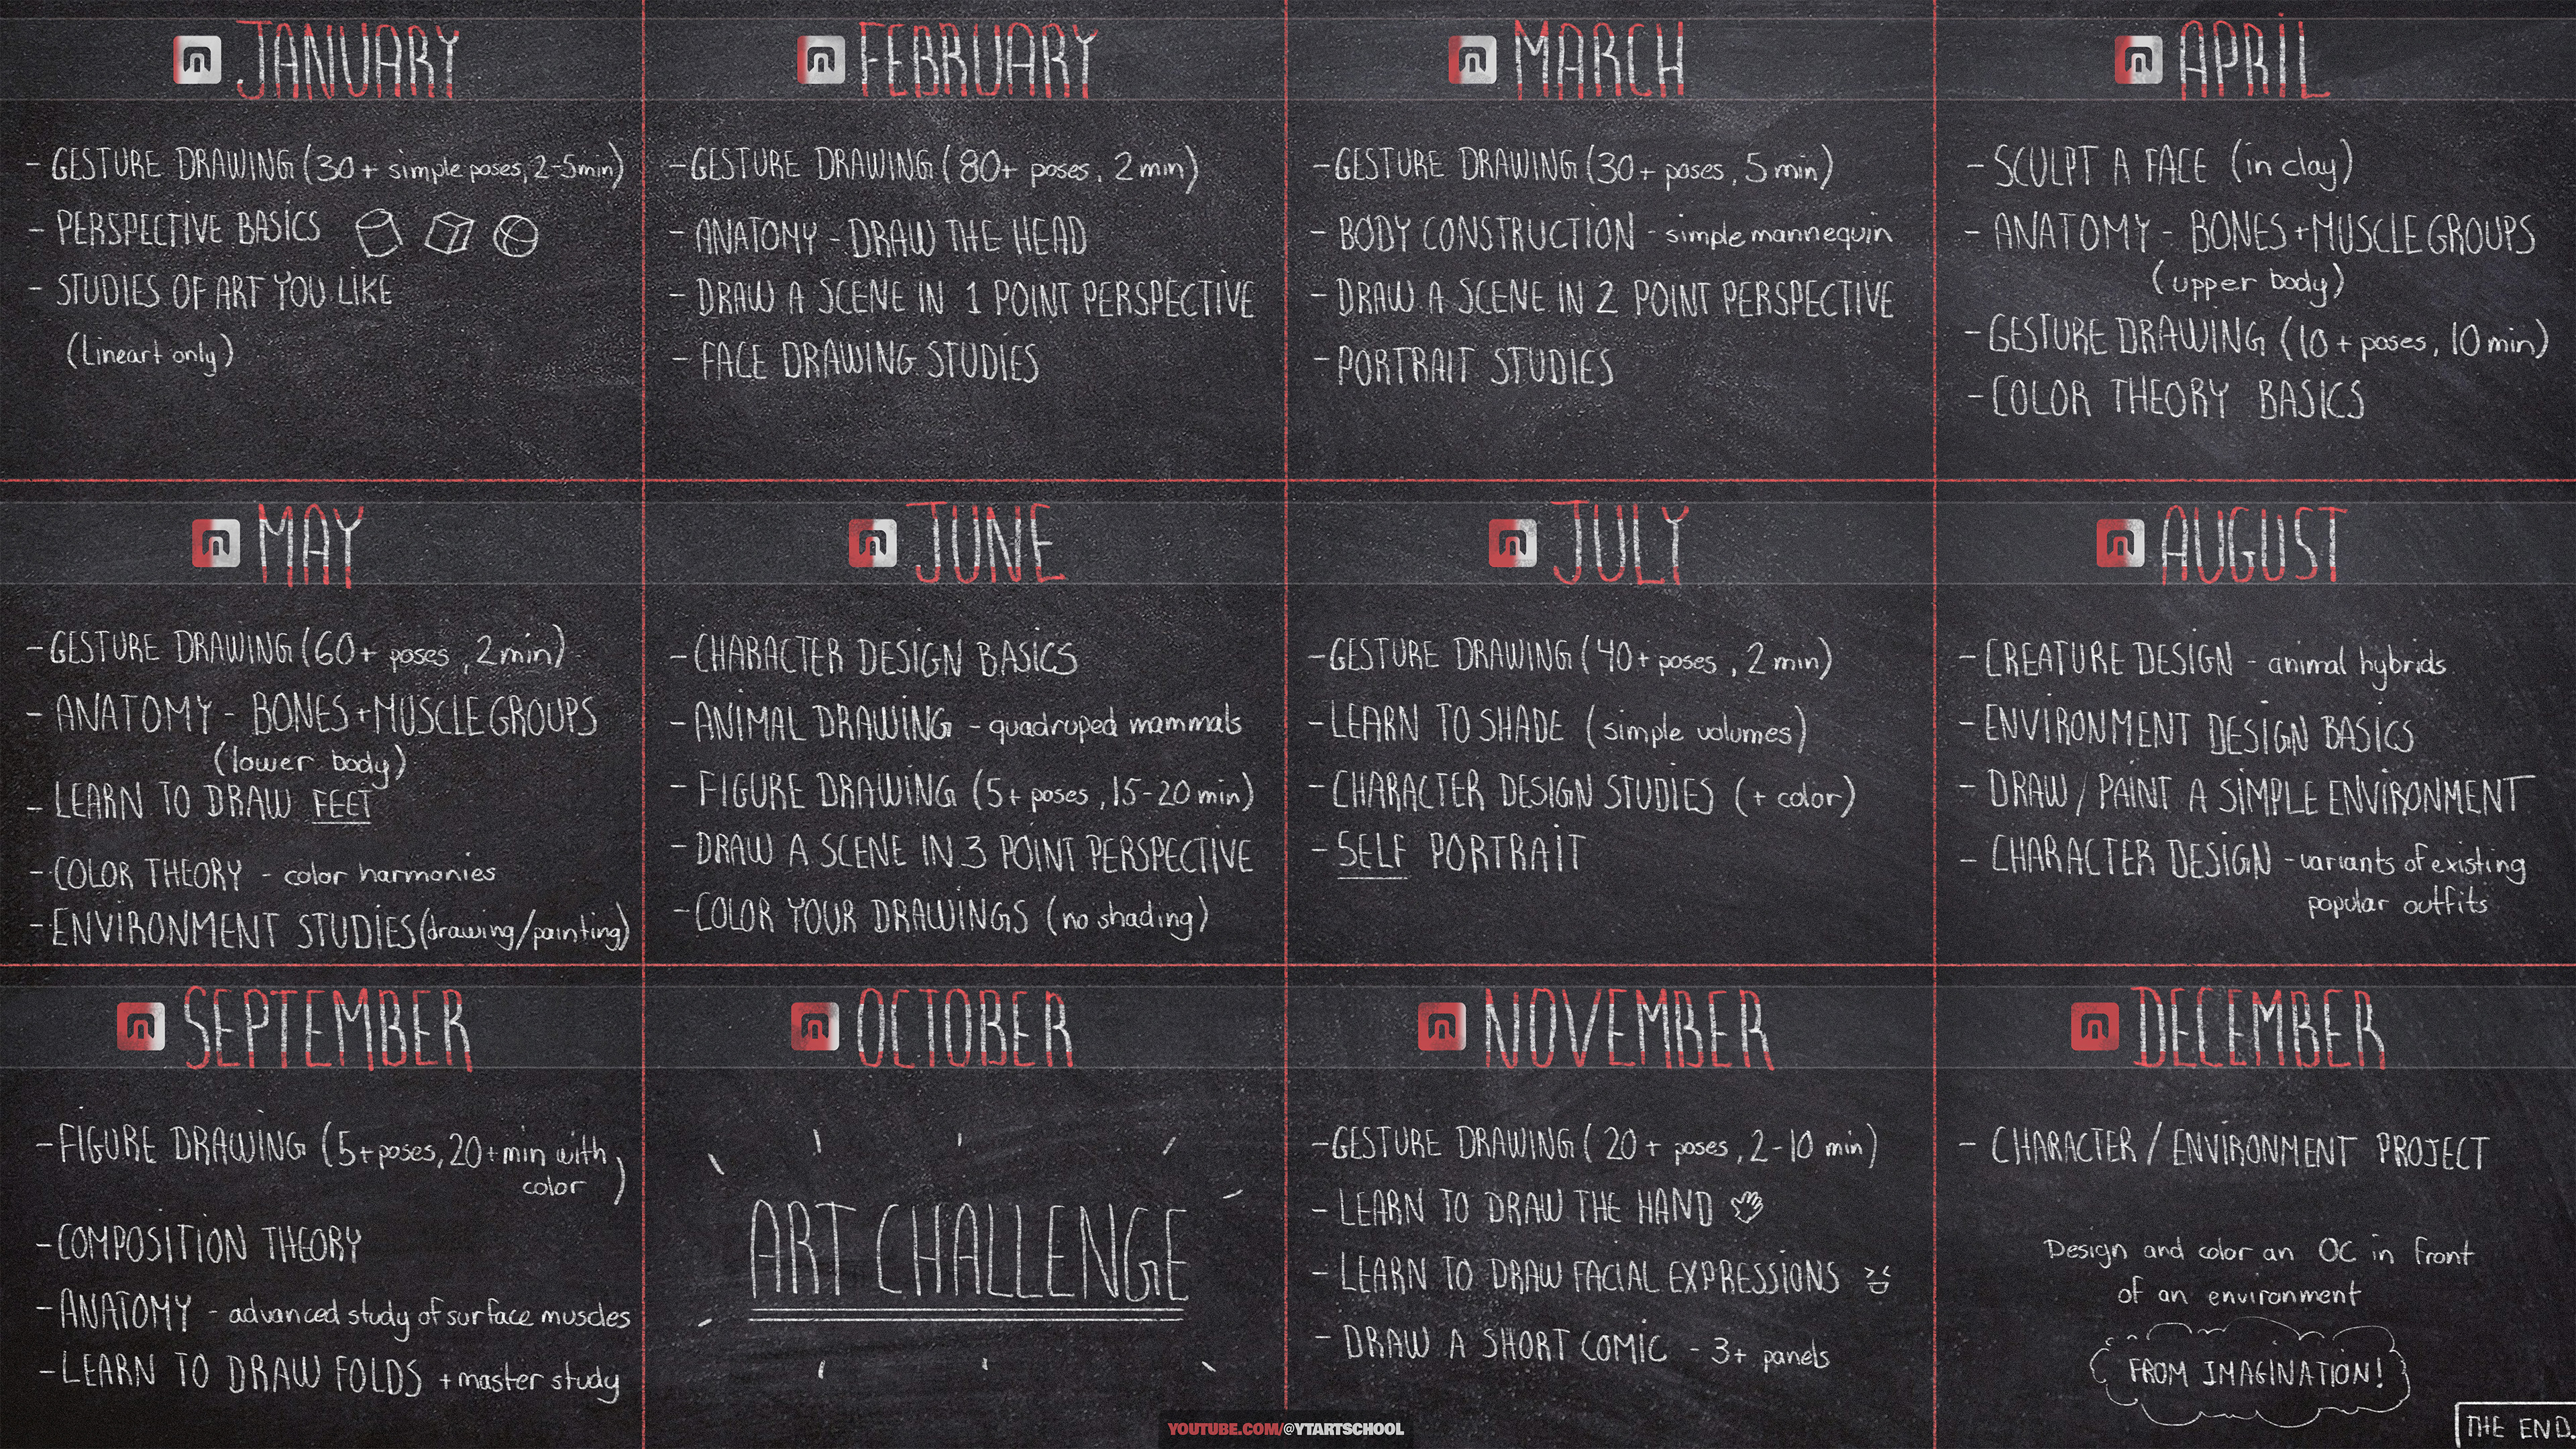 JANUARY
- GESTURE DRAWING (30+ simple poses, 2-5min)
- PERSPECTIVE BASICS
- STUDIES OF ART YOU LIKE
(Lineart only)
FEBRUARY
- GESTURE DRAWING (80+ poses, 2min)
- ANATOMY - DRAW THE HEAD
- DRAW A SCENE IN 1 POINT PERSPECTIVE
- FACE DRAWING STUDIES
MARCH
- GESTURE DRAWING (30+ poses, 5min)
- BODY CONSTRUCTION - simple mannequin
- DRAW A SCENE IN 2 POINT PERSPECTIVE
- PORTRAIT STUDIES
APRIL
- SCULPT A FACE (in clay)
- ANATOMY - BONES + MUSCLE GROUPS
(upper body)
- GESTURE DRAWING (10+ poses, 10min)
- COLOR THEORY BASICS
MAY
- GESTURE DRAWING (60+ poses, 2min)
- ANATOMY - BONES + MUSCLE GROUPS
(lower body)
- LEARN TO DRAW FEET
- COLOR THEORY - color harmonies
- ENVIRONMENT STUDIES (drawing/painting)
JUNE
- CHARACTER DESIGN BASICS
- ANIMAL DRAWING - quadruped mammals
- FIGURE DRAWING (5+ poses, 15-20 min)
- DRAW A SCENE IN 3 POINT PERSPECTIVE
- COLOR YOUR DRAWINGS (no shading)
JULY
- GESTURE DRAWING (40+ poses, 2min)
- LEARN TO SHADE (simple volumes)
- CHARACTER DESIGN STUDIES (+ color)
- SELF PORTRAIT
AUGUST
- CREATURE DESIGN - animal hybrids
- ENVIRONMENT DESIGN BASICS
- DRAW / PAINT A SIMPLE ENVIRONMENT
- CHARACTER DESIGN - variants of existing
popular outfits
SEPTEMBER
- FIGURE DRAWING (5+ poses, 20+ min with
color)
- COMPOSITION THEORY
- ANATOMY - advanced study of surface muscles
- LEARN TO DRAW FOLDS + master study
OCTOBER
ART CHALLENGE
NOVEMBER
- GESTURE DRAWING (20+ poses, 2-10 min)
- LEARN TO DRAW THE HAND
- LEARN TO DRAW FACIAL EXPRESSIONS
- DRAW A SHORT COMIC - 3+ panels
DECEMBER
- CHARACTER / ENVIRONMENT PROJECT
Design and color an OC in front
of an environment
FROM IMAGINATION!
THE END.
YOUTUBE.COM/@YTARTSCHOOL